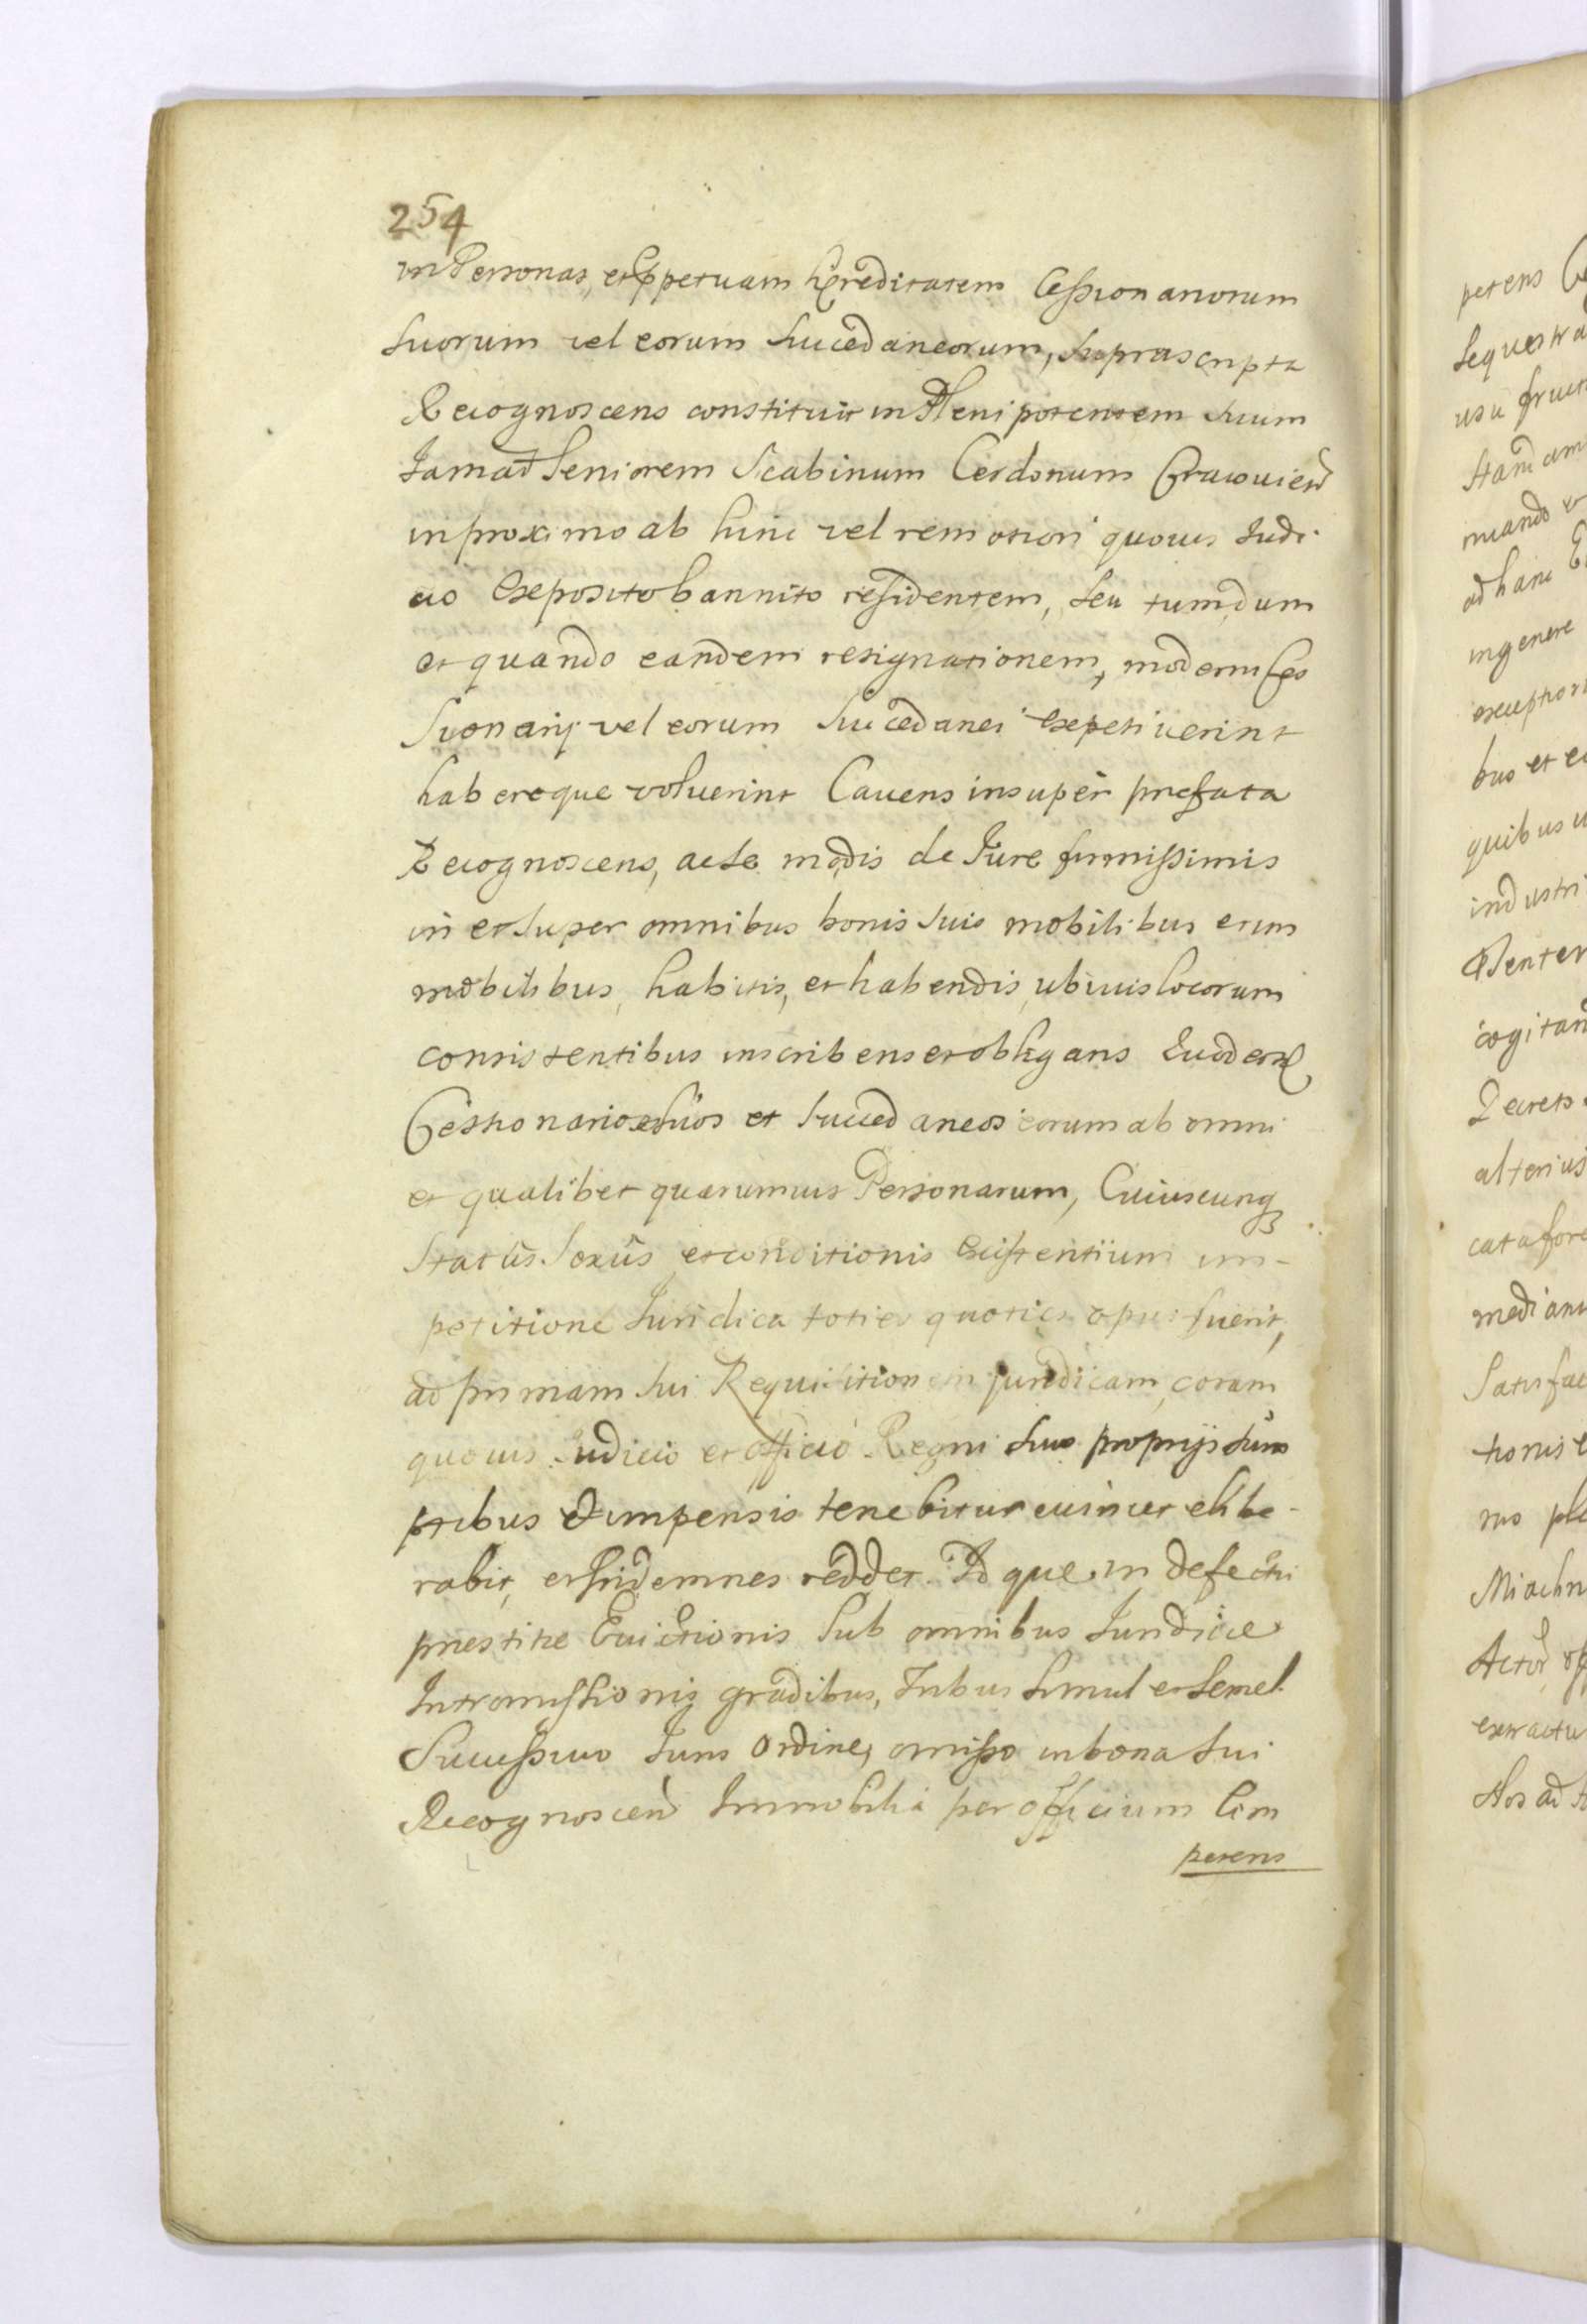 254
in Personas, et ppetuam hęreditatem Cessionariorum
suorum vel eorum succedaneorum, suprascripta
Recognoscens constituit in Plenipotentem suum
Famat Seniorem Scabinum Cerdonum Cracouien
in proximo ab hinc vel remotiori quouis Judi-
cio Exposito bannito residentem, seu tum, dum
et quando eandem resignationem, moderni Ces
sionarij vel eorum succedanei expetiuerint
habereque voluerint Cauens insuper prefata
Recognoscens, ac se modis de Jure firmissimis
in et super omnibus bonis suis mobilibus et im
mobilibus, habitis, et habendis, ubiuis locorum
consistentibus inscribens et obligans Quod
Cessionarios suos et succedaneos eorum ab omni
et qualibet quarumuis Personarum, Cuiuscunq
status, sexus, et conditionis Existentium im-
petitione Juridica toties quoties opus fuerit,
ad primam sui Requisitionem juridicam, coram
quouis Judicio et officio Regni suis proprijs sum
ptibus & impensis tenebitur euincet elibe-
rabit, et indemnes reddet. Id que in defectu
prestitæ Euictionis sub omnibus Juridicæ
Intromissionis gradibus, Tribus simul et semel
Successiuo Juris ordine, omisso in bona sui
Recognoscen Immobilia per officium Com
petens
petens
sequestra
usu fruct
ad hanc
in genere
exception
bus et
quibus
industri
cogitan
Decreto
alterius
cata fore
median
Satisfac
tionis
Miachn
Actor
extractu
Hos ad